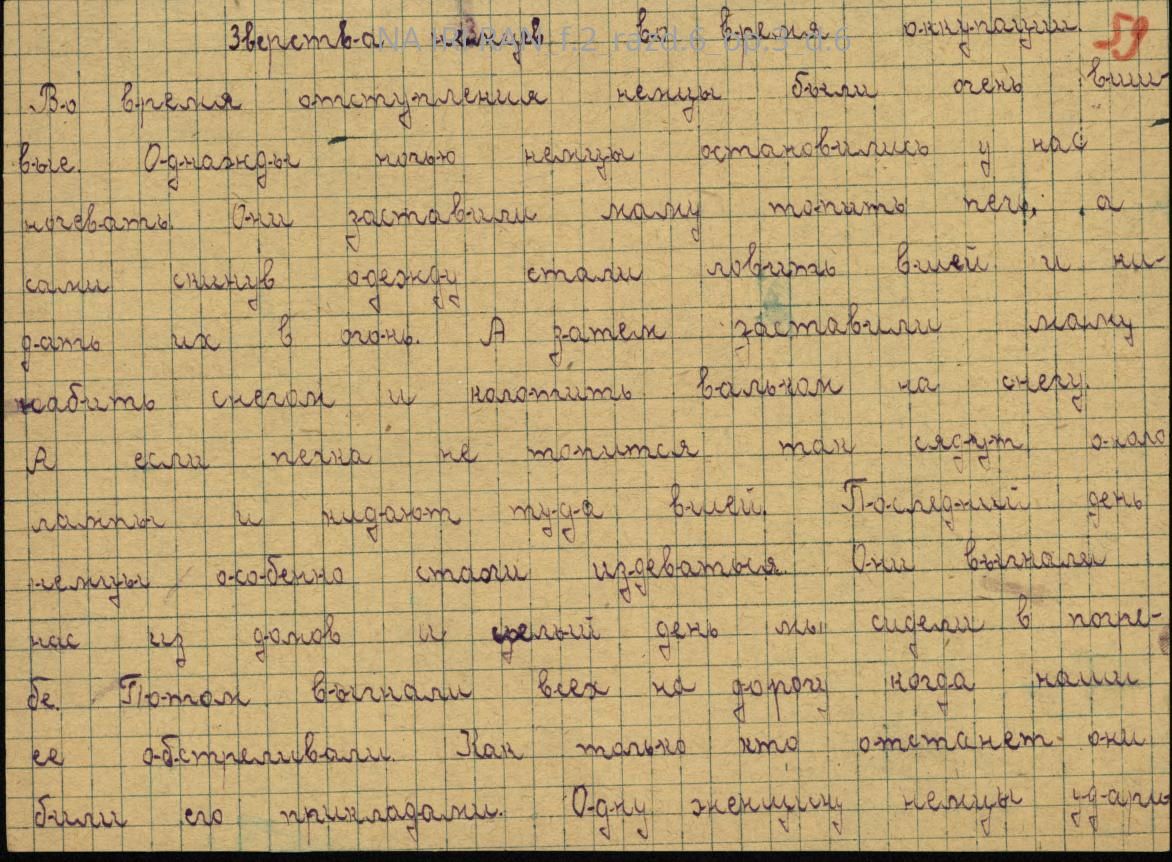 Зверства немцев во время оккупации.
59
NA IRI RAN f.2 razd.6 op.5 d.6
Во время отступления немцы были очень вши-
вые. Однажды ночью немцы остановились у нас
ночевать. Они заставили маму топить печь, а
сами скинув одежду стали ловить вшей и ки-
дать их в огонь. А затем заставили маму
набить снегом и колотить вальком на снегу.
А если печка не топится так сядут около
лампы и кидают туда вшей. Последний день
немцы особенно стали издеваться. Они выгнали
нас из домов и целый день мы сидели в погре-
бе. Потом выгнали всех на дорогу когда наши
ее обстреливали. Как только кто отстанет они
били его прикладами. Одну женщину немцы удари-